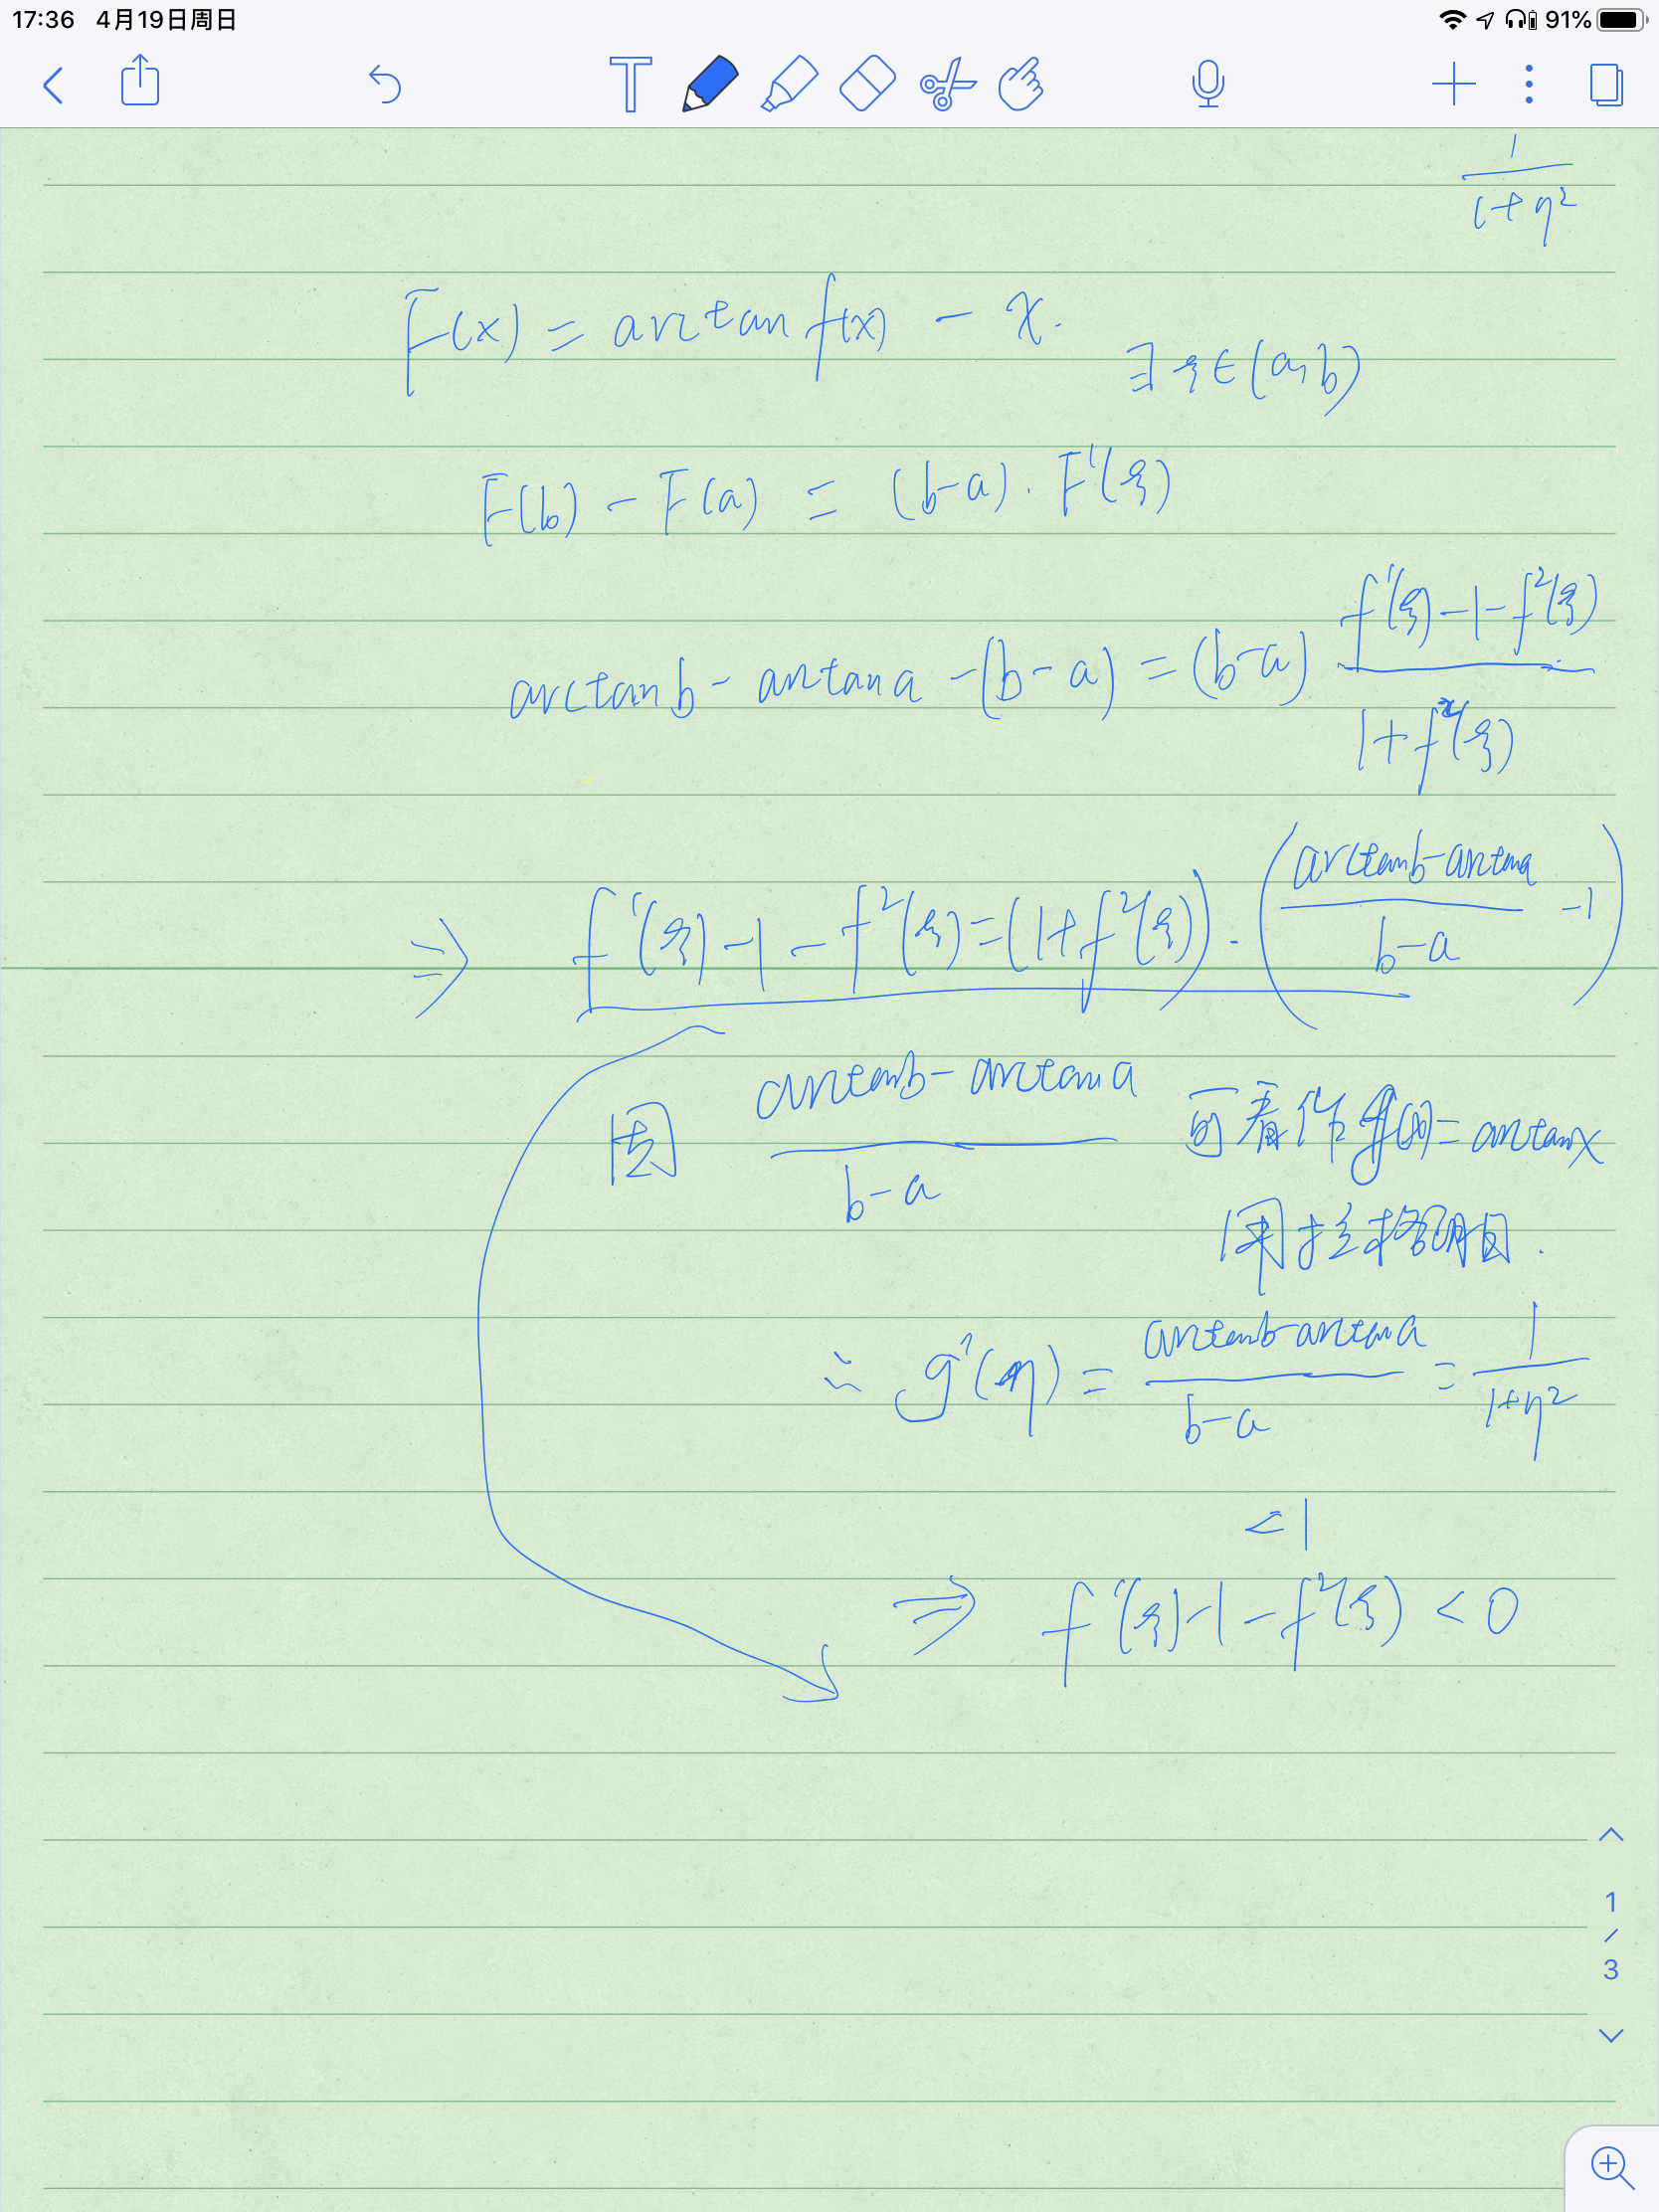 17:36 4月19日周日
91%
T
1/(1+η²)
F(x) = arctan f(x) - x.
∃ ξ∈(a,b)
F(b) - F(a) = (b-a)·F'(ξ)
arctan b - arctan a - (b-a) = (b-a) (f'(ξ)-1-f²(ξ))/(1+f²(ξ))
⇒ f'(ξ)-1-f²(ξ)=(1+f²(ξ))·((arctan b-arctan a)/(b-a) -1)
因 (arctan b - arctan a)/(b-a) 可看作 g(x)= arctan x
用拉格朗日.
∴ g'(η) = (arctan b-arctan a)/(b-a) = 1/(1+η²)
<1
⇒ f'(ξ)-1-f²(ξ) < 0
1
/
3